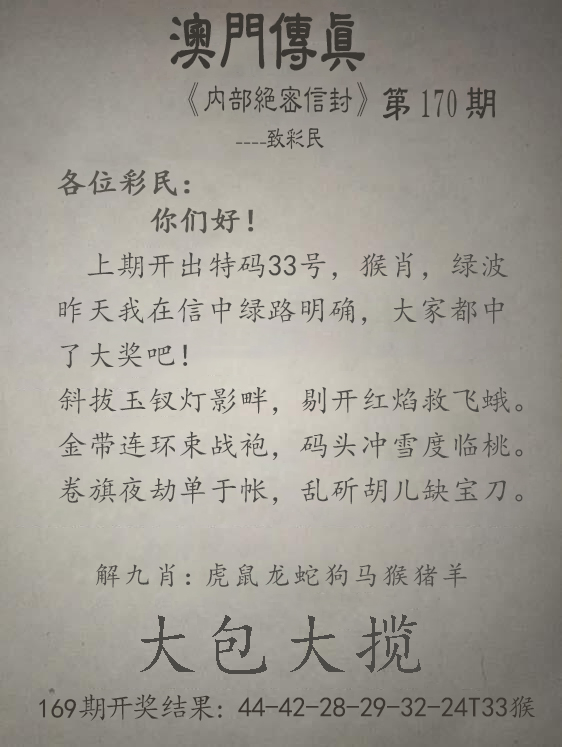 澳門傳眞
《内部絕密信封》第170期
----致彩民
各位彩民：
你们好！
上期开出特码33号，猴肖，绿波
昨天我在信中绿路明确，大家都中
了大奖吧！
斜拔玉钗灯影畔，剔开红焰救飞蛾。
金带连环束战袍，码头冲雪度临桃。
卷旗夜劫单于帐，乱斫胡儿缺宝刀。
解九肖：虎鼠龙蛇狗马猴猪羊
大包大揽
169期开奖结果：44-42-28-29-32-24T33猴